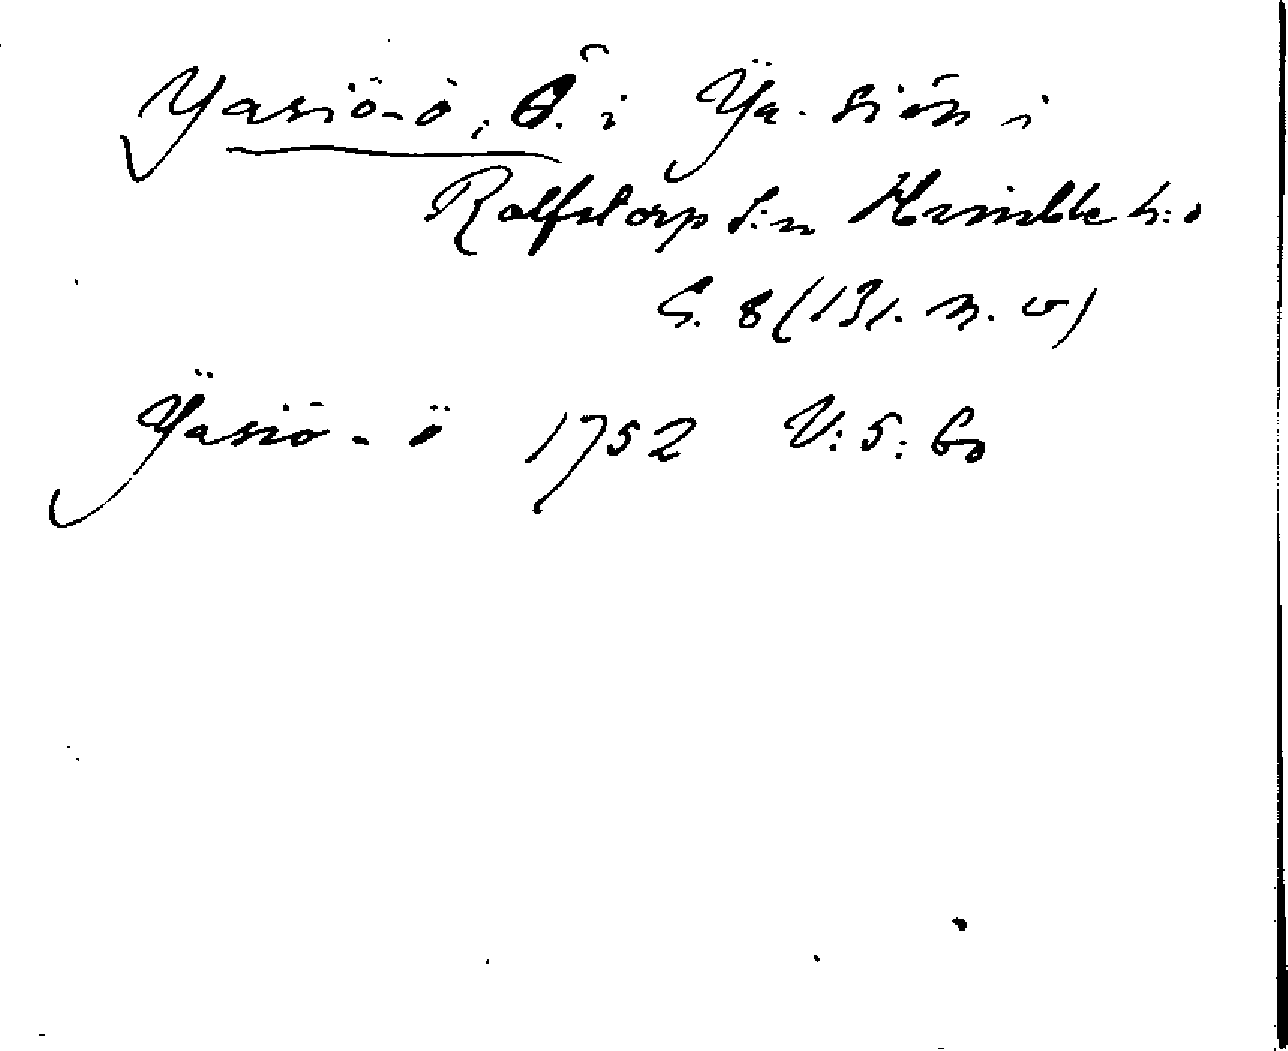 Yasjö-ö, Ö. i Ÿa-sjön i
Rolfstorp s:n Himble h:d
G. 8 (131. n. v)
Ÿasiö-ö 1752 V:5:60